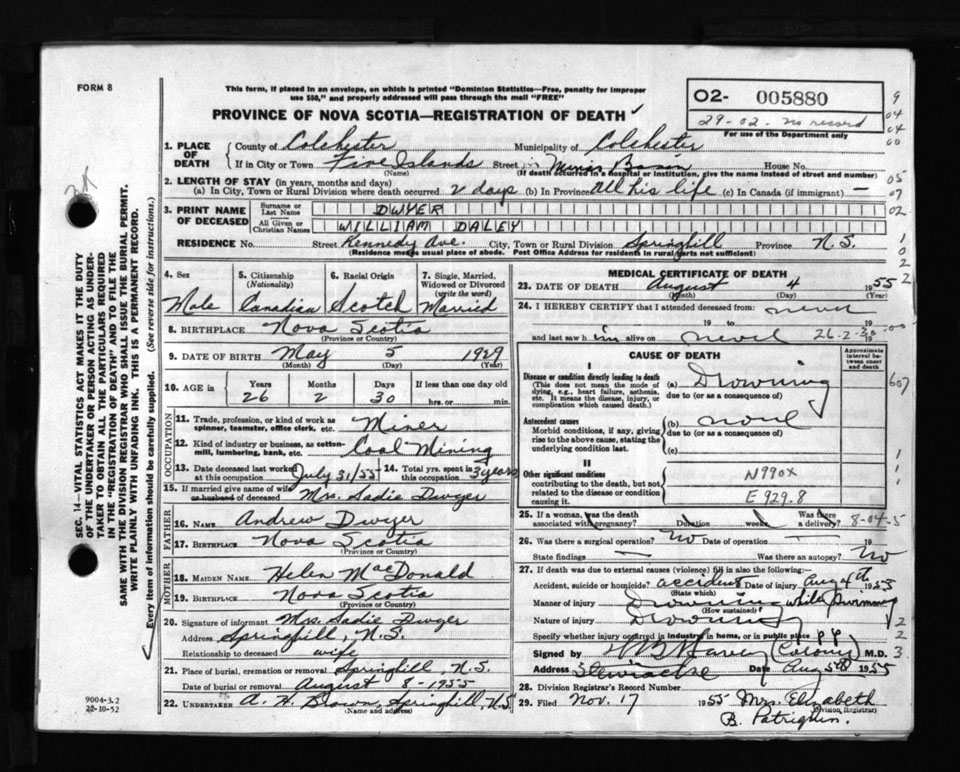 FORM 8
This form, if placed in an envelope, on which is printed "Dominion Statistics—Free, penalty for improper
use $50," and properly addressed will pass through the mail "FREE"
PROVINCE OF NOVA SCOTIA—REGISTRATION OF DEATH
02- 005880
29-02. no record
For use of the Department only
1. PLACE OF DEATH
County of Colchester Municipality of Colchester
If in City or Town Five Islands Street in Minis Basin House No.
(Name) (If death occurred in a hospital or institution, give the name instead of street and number)
2. LENGTH OF STAY (in years, months and days)
(a) In City, Town or Rural Division where death occurred 2 days (b) In Province all his life (c) In Canada (if immigrant) —
3. PRINT NAME OF DECEASED
Surname or Last Name DWYER
All Given or Christian Names WILLIAM DALEY
RESIDENCE No. Street Kennedy Ave. City, Town or Rural Division Springhill Province N.S.
(Residence means usual place of abode. Post Office Address for residents in rural parts not sufficient)
4. Sex Male
5. Citizenship (Nationality) Canadian
6. Racial Origin Scotch
7. Single, Married, Widowed or Divorced (write the word) Married
8. BIRTHPLACE Nova Scotia
(Province or Country)
9. DATE OF BIRTH May 5 1929
(Month) (Day) (Year)
10. AGE in Years Months Days If less than one day old
26 2 30 hrs. or min.
OCCUPATION
11. Trade, profession, or kind of work as spinner, teamster, office clerk, etc. Miner
12. Kind of industry or business, as cotton-mill, lumbering, bank, etc. Coal Mining
13. Date deceased last worked at this occupation July 31/55 14. Total yrs. spent in this occupation 3 years
15. If married give name of wife or husband of deceased Mrs. Sadie Dwyer
FATHER
16. NAME Andrew Dwyer
17. BIRTHPLACE Nova Scotia
(Province or Country)
MOTHER
18. MAIDEN NAME Helen MacDonald
19. BIRTHPLACE Nova Scotia
(Province or Country)
20. Signature of informant Mrs. Sadie Dwyer
Address Springhill, N.S.
Relationship to deceased wife
21. Place of burial, cremation or removal Springhill, N.S.
Date of burial or removal August 8-1955
22. UNDERTAKER A. H. Brown, Springhill, N.S
(Name and address)
MEDICAL CERTIFICATE OF DEATH
23. DATE OF DEATH August 4 1955
(Month) (Day) (Year)
24. I HEREBY CERTIFY that I attended deceased from never
19 to 19
and last saw him alive on never 19
26-2-30
CAUSE OF DEATH
Approximate interval between onset and death
I
Disease or condition directly leading to death
(This does not mean the mode of dying, e.g., heart failure, asthenia, etc. It means the disease, injury, or complication which caused death.)
(a) Drowning
due to (or as a consequence of)
Antecedent causes
Morbid conditions, if any, giving rise to the above cause, stating the underlying condition last.
(b)
due to (or as a consequence of)
(c)
II
Other significant conditions
contributing to the death, but not related to the disease or condition causing it.
N990X
E929.8
25. If a woman, was the death associated with pregnancy? Duration weeks Was there a delivery?
8-04-5
26. Was there a surgical operation? No Date of operation —
State findings — Was there an autopsy? No
27. If death was due to external causes (violence) fill in also the following:
Accident, suicide or homicide? accident Date of injury Aug 4th 1955
(State which)
Manner of injury Drowning while swimming
(How sustained)
Nature of injury Drowning
Specify whether injury occurred in industry, in home, or in public place
Signed by M.D.
Address Stewiacke Date Aug 5th 1955
28. Division Registrar's Record Number
29. Filed Nov. 17 1955 Mrs. Elizabeth
(Division Registrar)
SEC. 14—VITAL STATISTICS ACT MAKES IT THE DUTY
OF THE UNDERTAKER OR PERSON ACTING AS UNDER-
TAKER TO OBTAIN ALL THE PARTICULARS REQUIRED
IN THE "REGISTRATION OF DEATH" AND TO FILE THE
SAME WITH THE DIVISION REGISTRAR WHO SHALL ISSUE THE BURIAL PERMIT.
WRITE PLAINLY WITH UNFADING INK. THIS IS A PERMANENT RECORD.
Every item of information should be carefully supplied. (See reverse side for instructions.)
9004-3.2
22-10-52